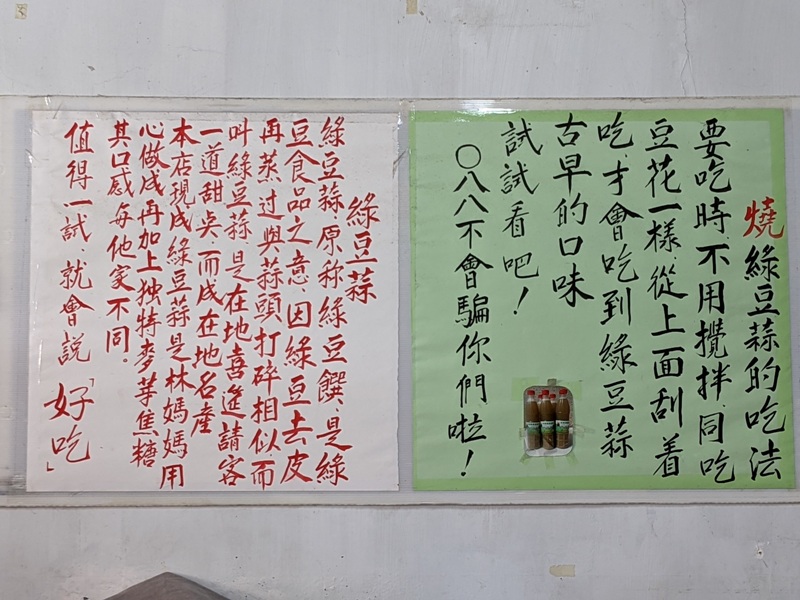 燒綠豆蒜的吃法
要吃時、不用攪拌同吃
豆花一樣、從上面刮着
吃、才會吃到綠豆蒜
古早的口味
試試看吧！
〇八八不會騙你們啦！
綠豆蒜
綠豆蒜原称綠豆饌、是綠
豆食品之意、因綠豆去皮
再蒸过與蒜頭打碎相似而
叫綠豆蒜、是在地喜進請客
一道甜点、而成在地名產
本店現成綠豆蒜是林媽媽用
心做成再加上独特麥芽焦糖
其口感每他家不同．
值得一試就會說「好吃」